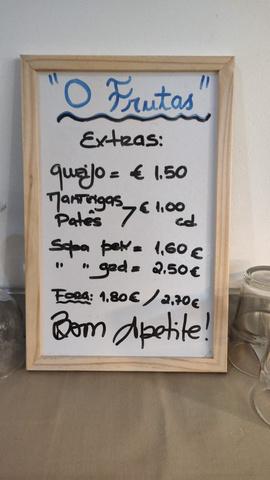 "O Frutas"
Extras:
queijo = € 1.50
Manteigas
Patês / € 1,00 cd
Sopa peq = 1,60 €
" " gad = 2.50 €
Fora: 1,80 € / 2,70 €
Bom Apetite!